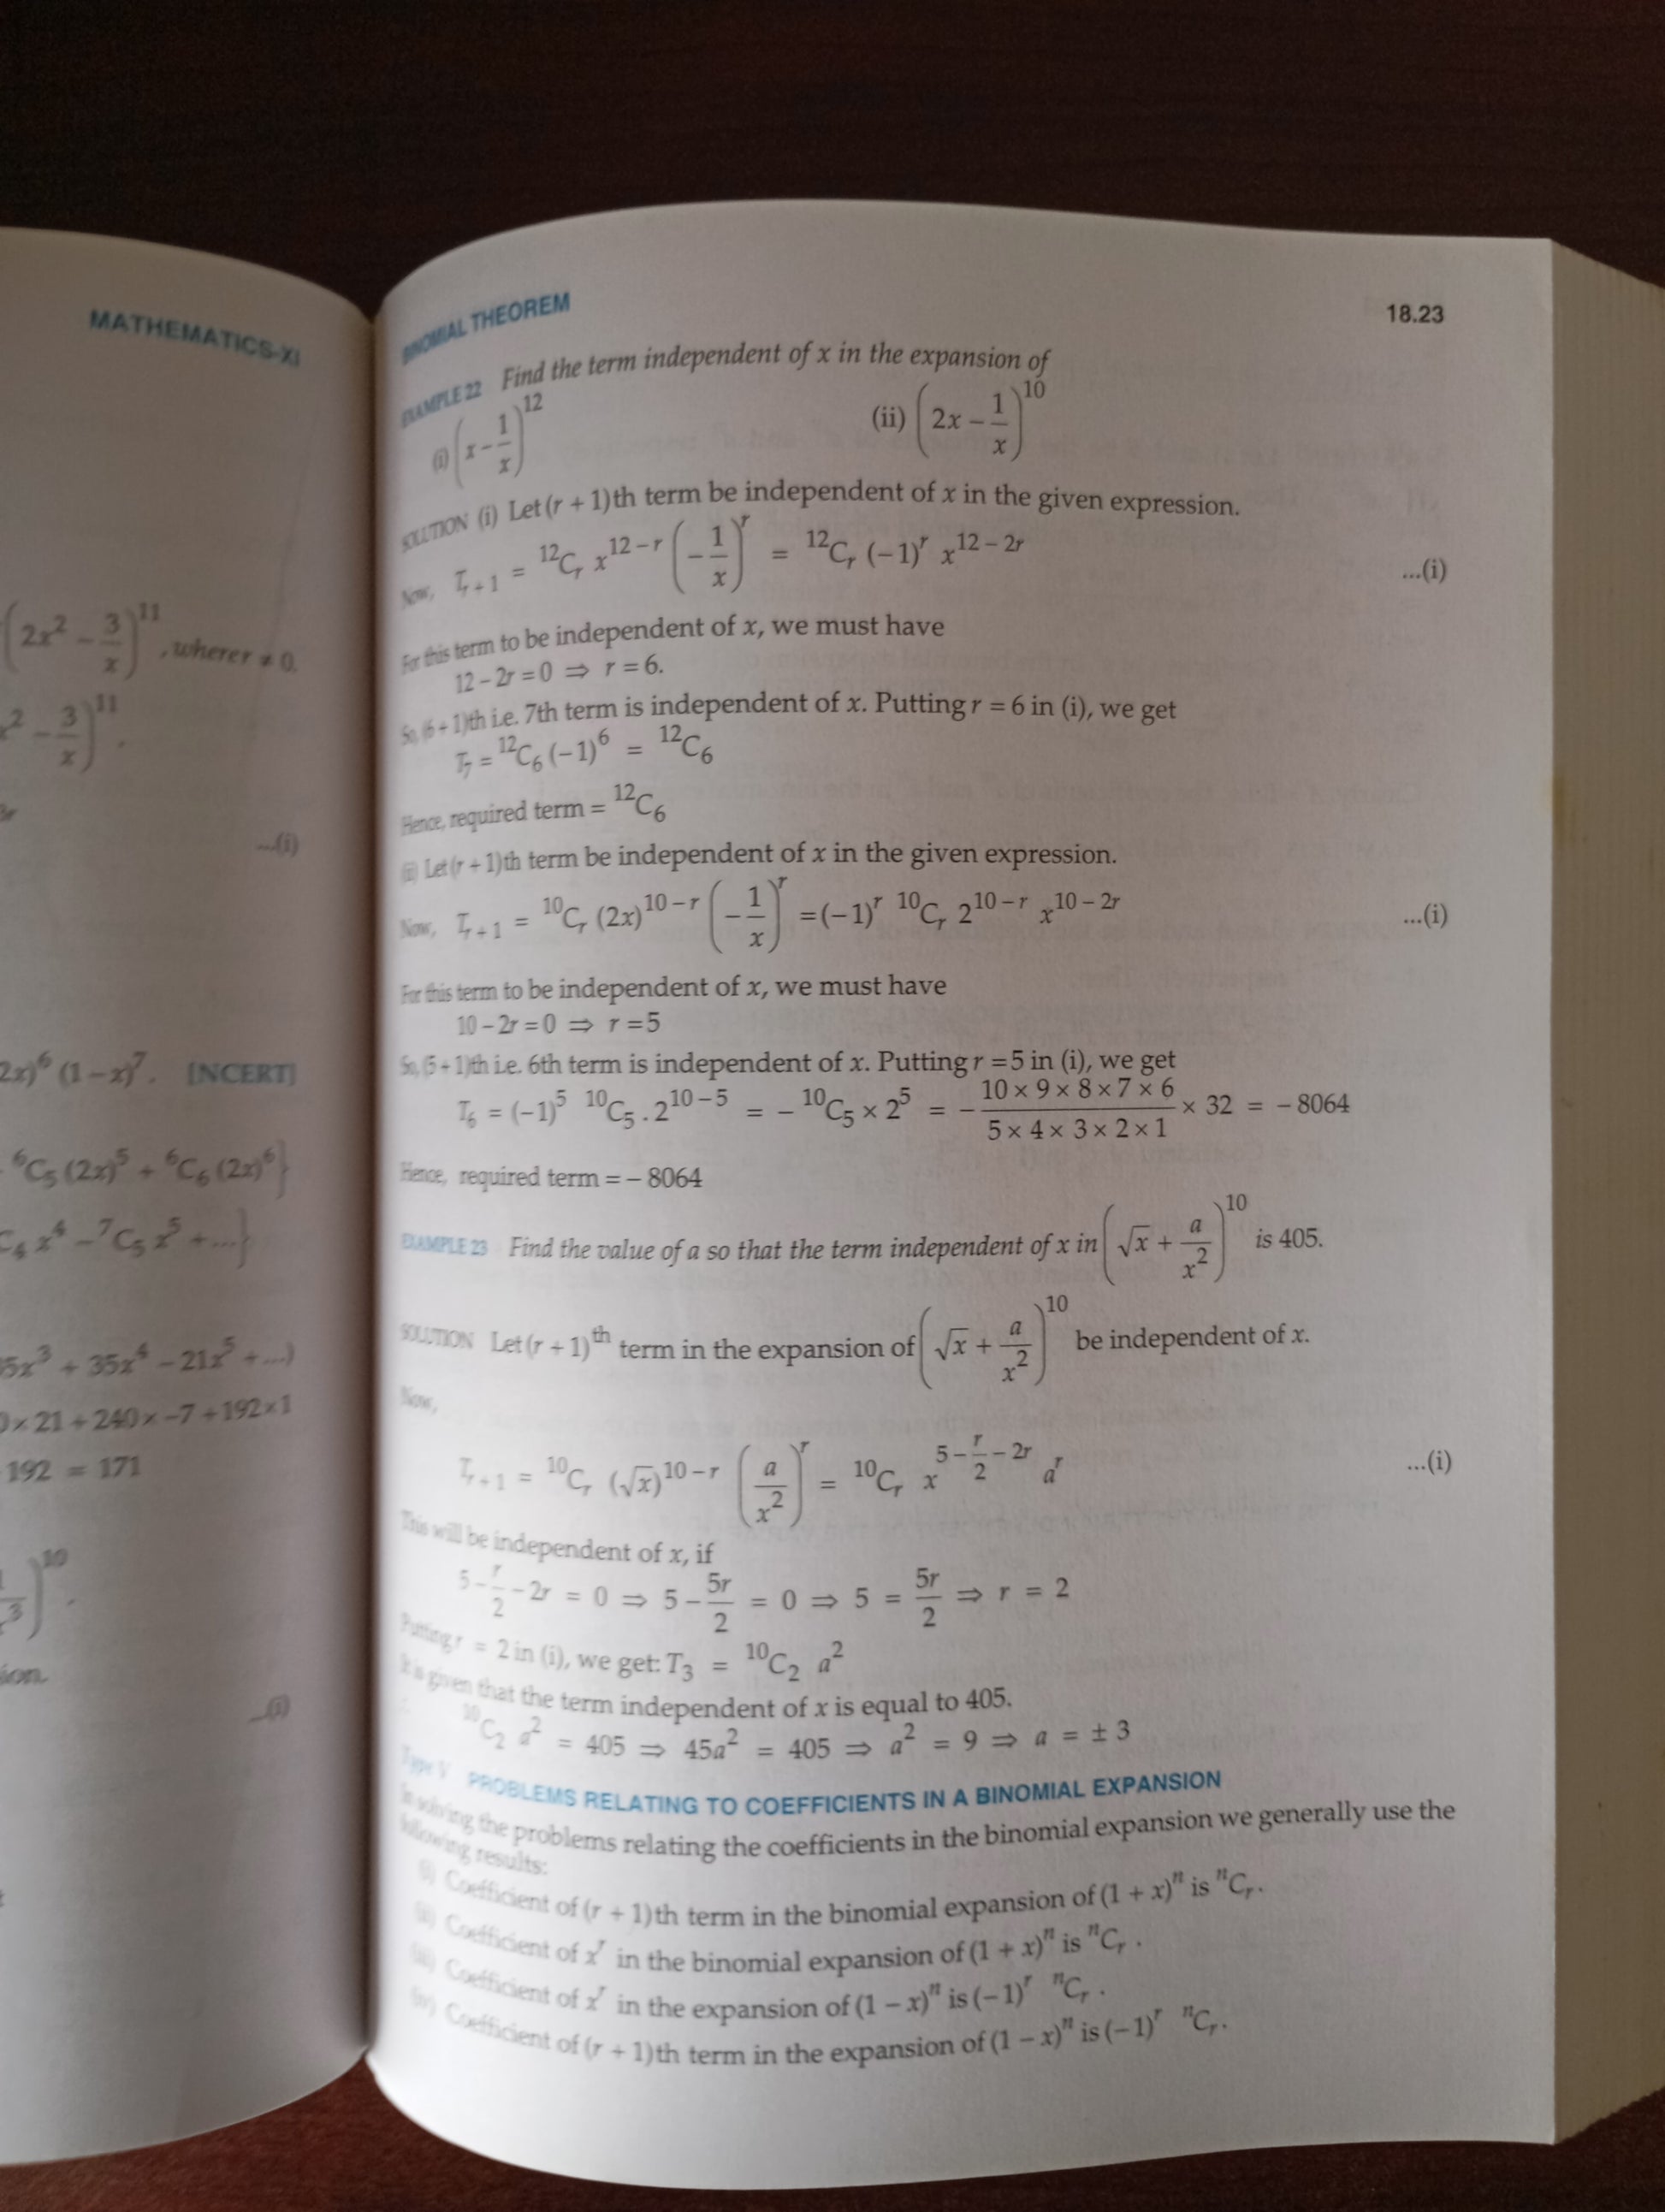 MATHEMATICS-XI
(2x² − 3/x)¹¹, where r ≠ 0.
x² − 3/x)¹¹.
...(i)
2x)⁶ (1 − x)⁷. [NCERT]
⁶C₅ (2x)⁵ + ⁶C₆ (2x)⁶}
C₄ x⁴ − ⁷C₅ x⁵ + ...}
5x³ + 35x⁴ − 21x⁵ + ...)
× 21 + 240 × −7 + 192 × 1
192 = 171
)¹⁰.
...(i)
BINOMIAL THEOREM 18.23
EXAMPLE 22 Find the term independent of x in the expansion of
(i) (x − 1/x)¹² (ii) (2x − 1/x)¹⁰
SOLUTION (i) Let (r + 1)th term be independent of x in the given expression.
Now, Tᵣ₊₁ = ¹²Cᵣ x¹²⁻ʳ (−1/x)ʳ = ¹²Cᵣ (−1)ʳ x¹²⁻²ʳ ...(i)
For this term to be independent of x, we must have
12 − 2r = 0 ⇒ r = 6.
So, (6 + 1)th i.e. 7th term is independent of x. Putting r = 6 in (i), we get
T₇ = ¹²C₆ (−1)⁶ = ¹²C₆
Hence, required term = ¹²C₆
(ii) Let (r + 1)th term be independent of x in the given expression.
Now, Tᵣ₊₁ = ¹⁰Cᵣ (2x)¹⁰⁻ʳ (−1/x)ʳ = (−1)ʳ ¹⁰Cᵣ 2¹⁰⁻ʳ x¹⁰⁻²ʳ ...(i)
For this term to be independent of x, we must have
10 − 2r = 0 ⇒ r = 5
So, (5 + 1)th i.e. 6th term is independent of x. Putting r = 5 in (i), we get
T₆ = (−1)⁵ ¹⁰C₅ . 2¹⁰⁻⁵ = − ¹⁰C₅ × 2⁵ = − (10 × 9 × 8 × 7 × 6)/(5 × 4 × 3 × 2 × 1) × 32 = − 8064
Hence, required term = − 8064
EXAMPLE 23 Find the value of a so that the term independent of x in (√x + a/x²)¹⁰ is 405.
SOLUTION Let (r + 1)ᵗʰ term in the expansion of (√x + a/x²)¹⁰ be independent of x.
Now,
Tᵣ₊₁ = ¹⁰Cᵣ (√x)¹⁰⁻ʳ (a/x²)ʳ = ¹⁰Cᵣ x^(5 − r/2 − 2r) aʳ ...(i)
This will be independent of x, if
5 − r/2 − 2r = 0 ⇒ 5 − 5r/2 = 0 ⇒ 5 = 5r/2 ⇒ r = 2
Putting r = 2 in (i), we get: T₃ = ¹⁰C₂ a²
It is given that the term independent of x is equal to 405.
¹⁰C₂ a² = 405 ⇒ 45a² = 405 ⇒ a² = 9 ⇒ a = ± 3
Type V PROBLEMS RELATING TO COEFFICIENTS IN A BINOMIAL EXPANSION
In solving the problems relating the coefficients in the binomial expansion we generally use the
following results:
(i) Coefficient of (r + 1)th term in the binomial expansion of (1 + x)ⁿ is ⁿCᵣ.
(ii) Coefficient of xʳ in the binomial expansion of (1 + x)ⁿ is ⁿCᵣ.
(iii) Coefficient of xʳ in the expansion of (1 − x)ⁿ is (−1)ʳ ⁿCᵣ.
(iv) Coefficient of (r + 1)th term in the expansion of (1 − x)ⁿ is (−1)ʳ ⁿCᵣ.